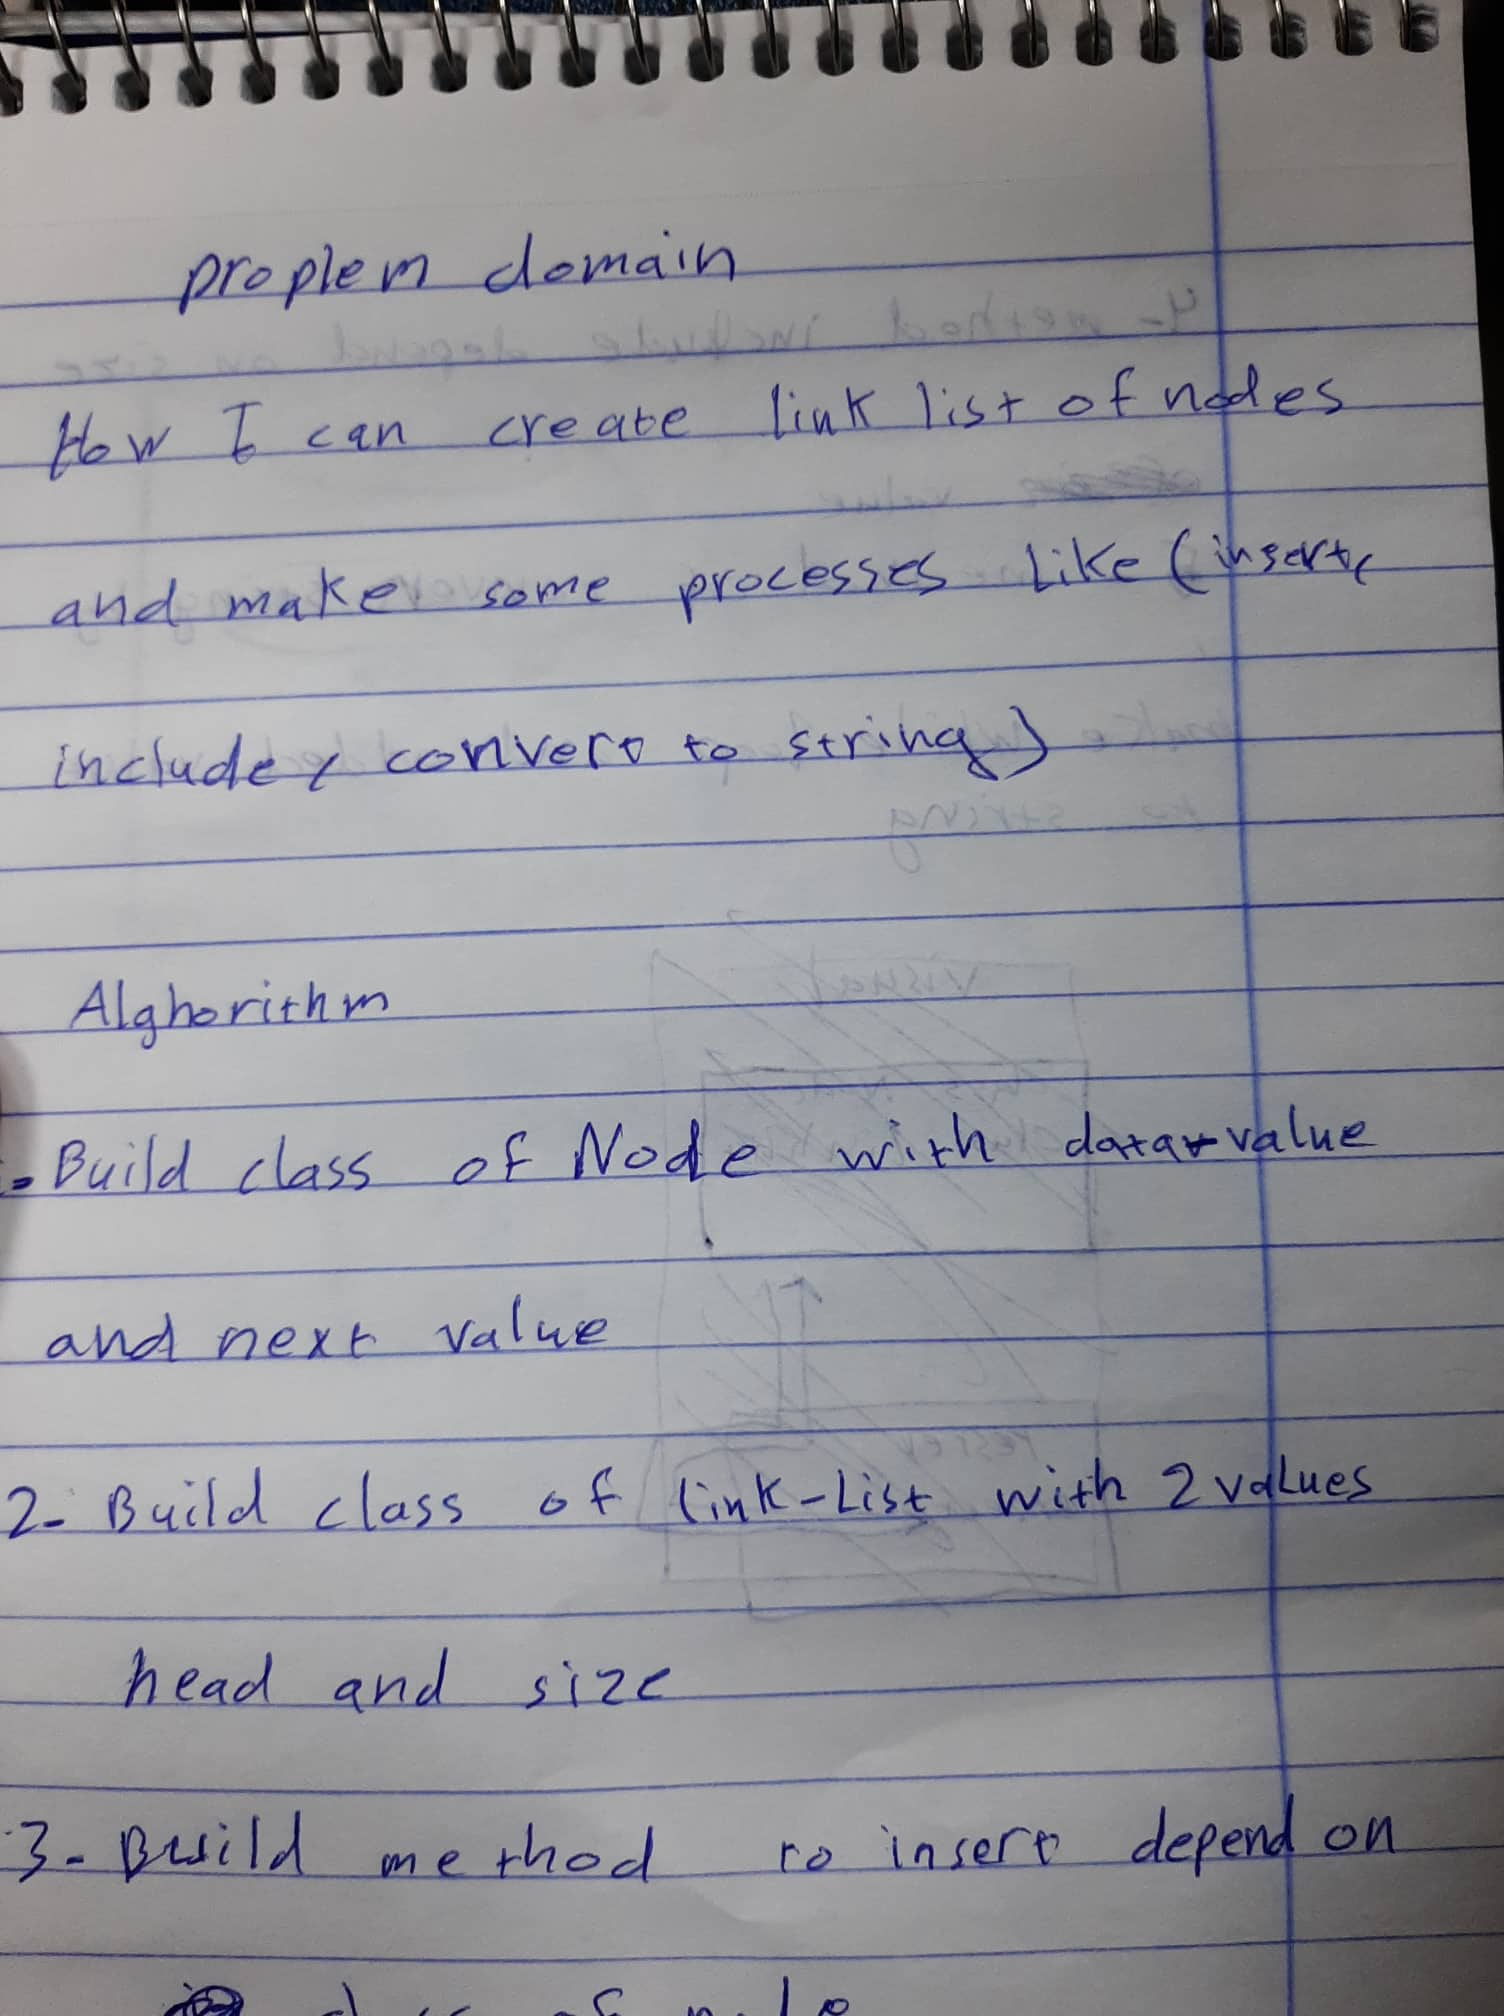 proplem domain
How I can create link list of nodes
and make some processes like (insert,
include, convert to string)
Alghorithm
- Build class of Node with data value
and next value
2- Build class of link-List with 2 values
head and size
3- Build method to insert depend on
class of node